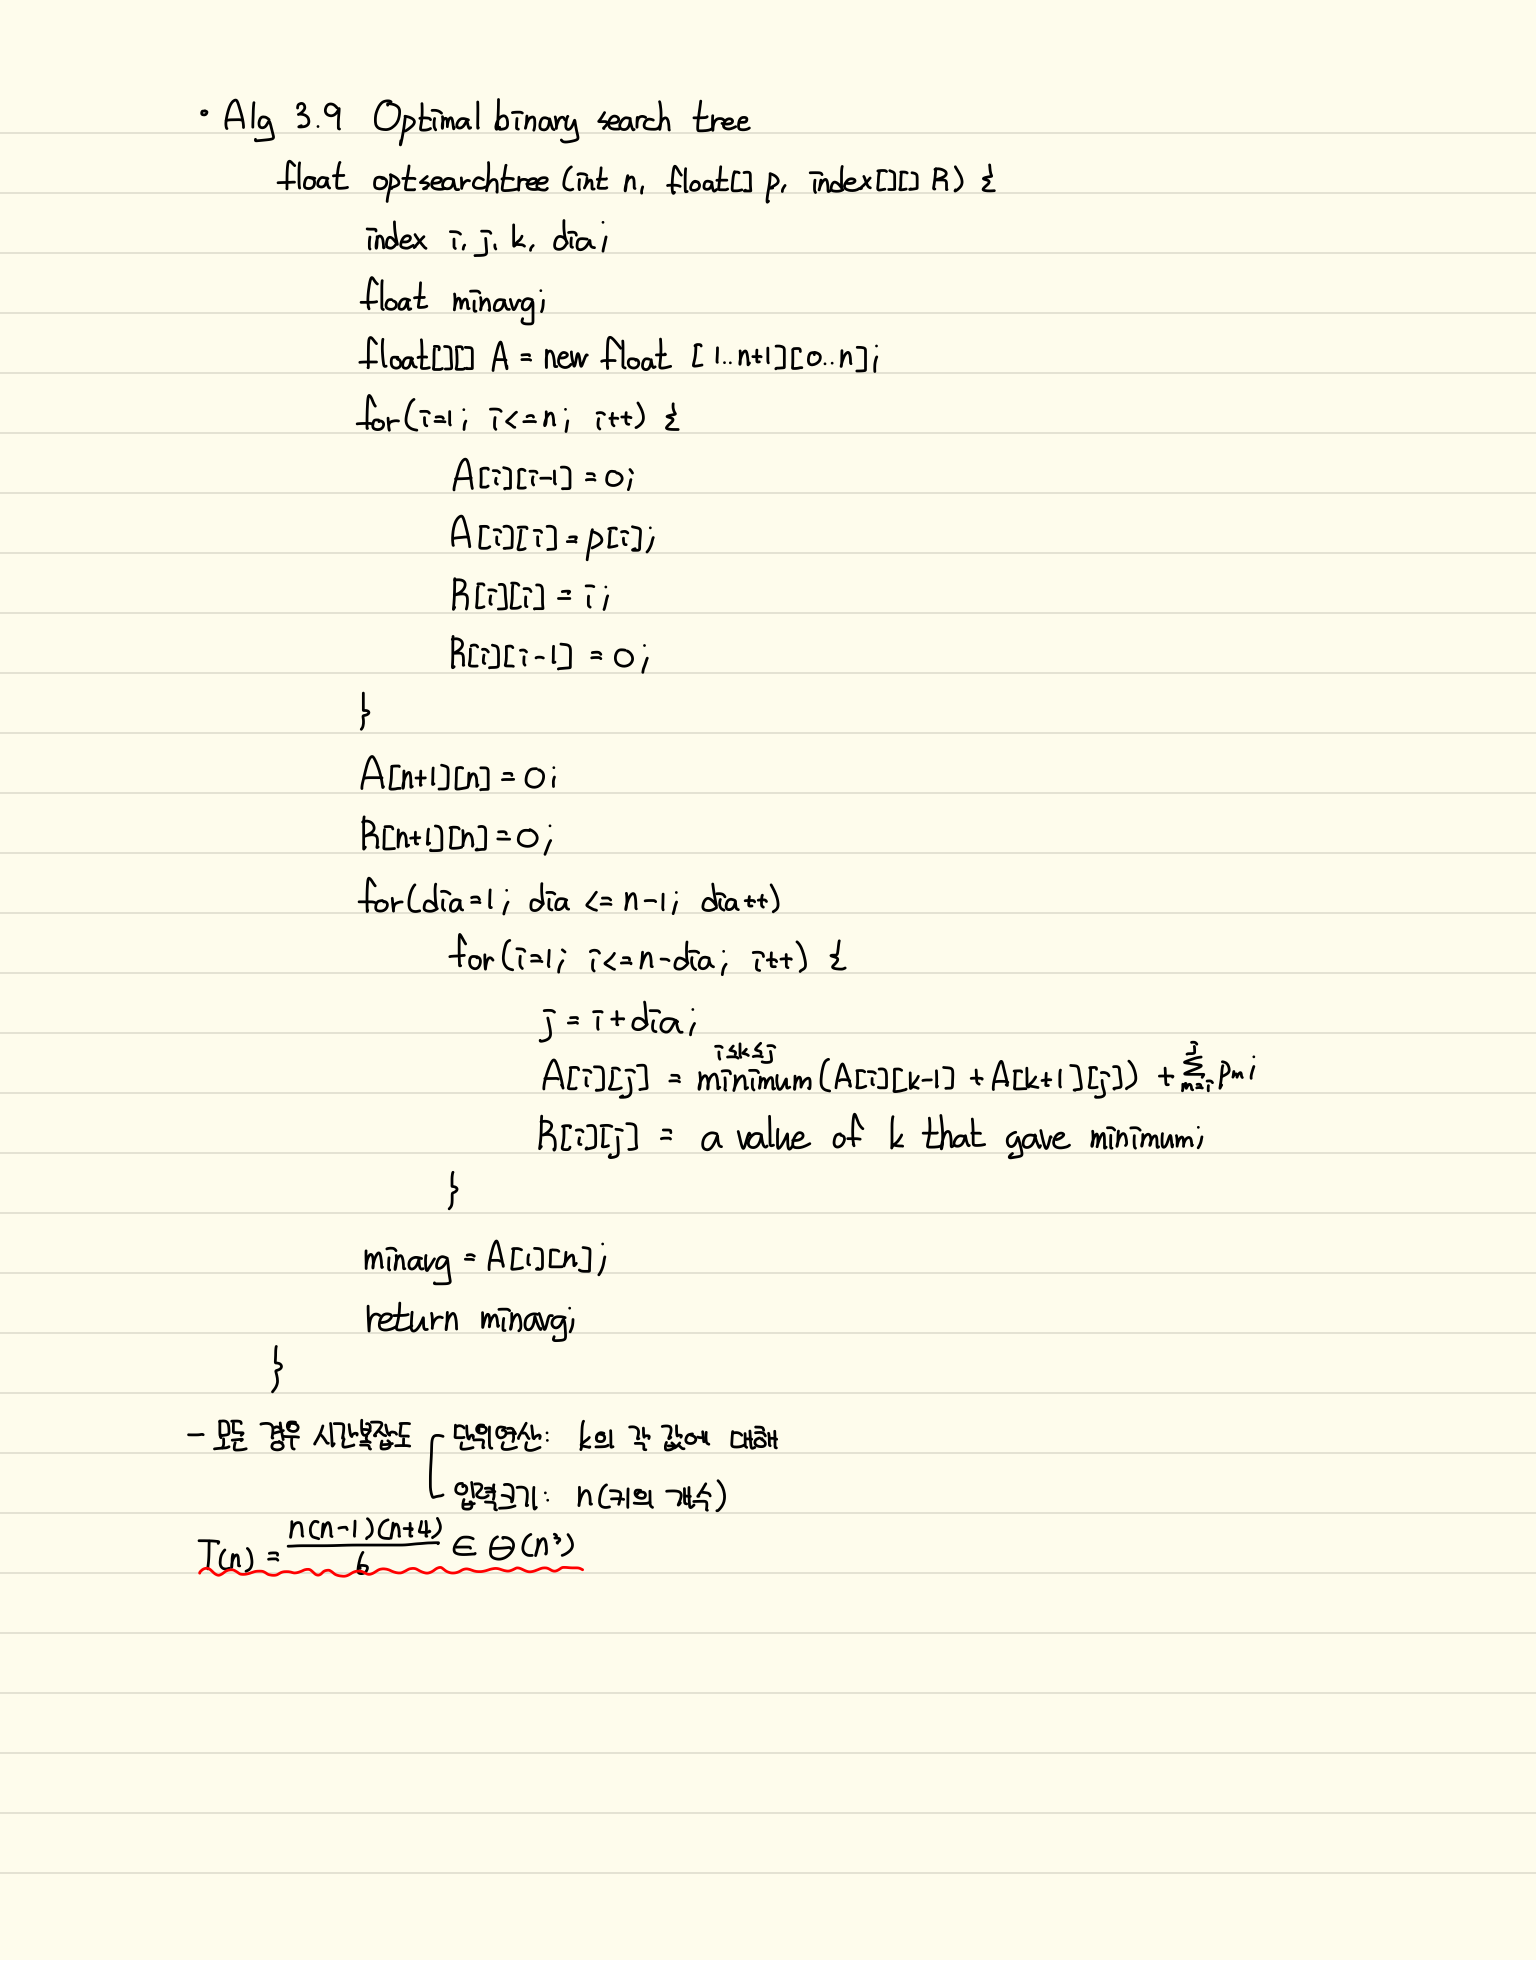 • Alg 3.9 Optimal binary search tree
float optsearchtree (int n, float[] p, index[][] R) {
index i, j, k, dia;
float minavg;
float[][] A = new float [1..n+1][0..n];
for(i=1; i<=n; i++) {
A[i][i-1] = 0;
A[i][i] = p[i];
R[i][i] = i;
R[i][i-1] = 0;
}
A[n+1][n] = 0;
R[n+1][n] = 0;
for(dia=1; dia <= n-1; dia++)
for(i=1; i<=n-dia; i++) {
j = i + dia;
A[i][j] = minimum i≤k≤j (A[i][k-1] + A[k+1][j]) + Σ_{m=i}^{j} pₘ;
R[i][j] = a value of k that gave minimum;
}
minavg = A[1][n];
return minavg;
}
- 모든 경우 시간복잡도 단위연산: k의 각 값에 대해
입력크기: n(키의 개수)
T(n) = n(n-1)(n+4)/6 ∈ Θ(n³)